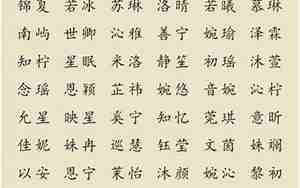 锦夏 若冰 苏琳 洛晴 若曦 慕琳
南屿 世卿 沁雅 善宁 婉瑜 泽霖
知柠 星眠 来洛 笙妍 初瑶 沐萱
念瑶 恩颖 芷祎 婉悠 音婉 沁柠
允星 映星 奚宁 知忆 菀琪 意昕
佳妮 姝冉 巡慧 钰莹 文茵 娴玥
以安 恩宁 茉怡 洛颜 婉沁 黎初